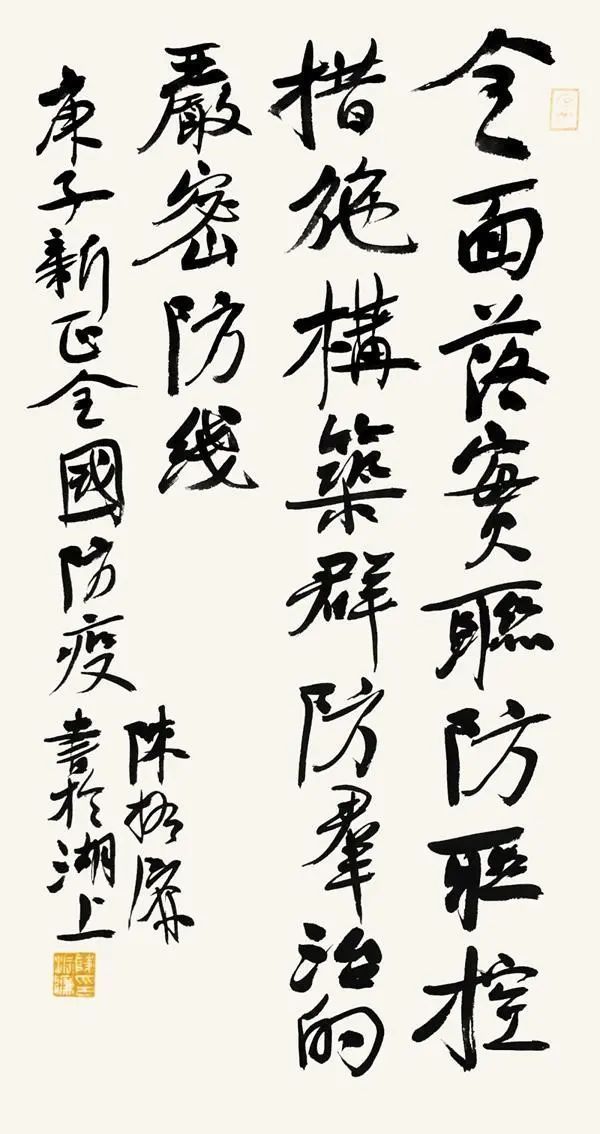 全面落實聯防联控
措施構築群防羣治的
嚴密防线
庚子新正全國防疫
陳振濂
書於湖上